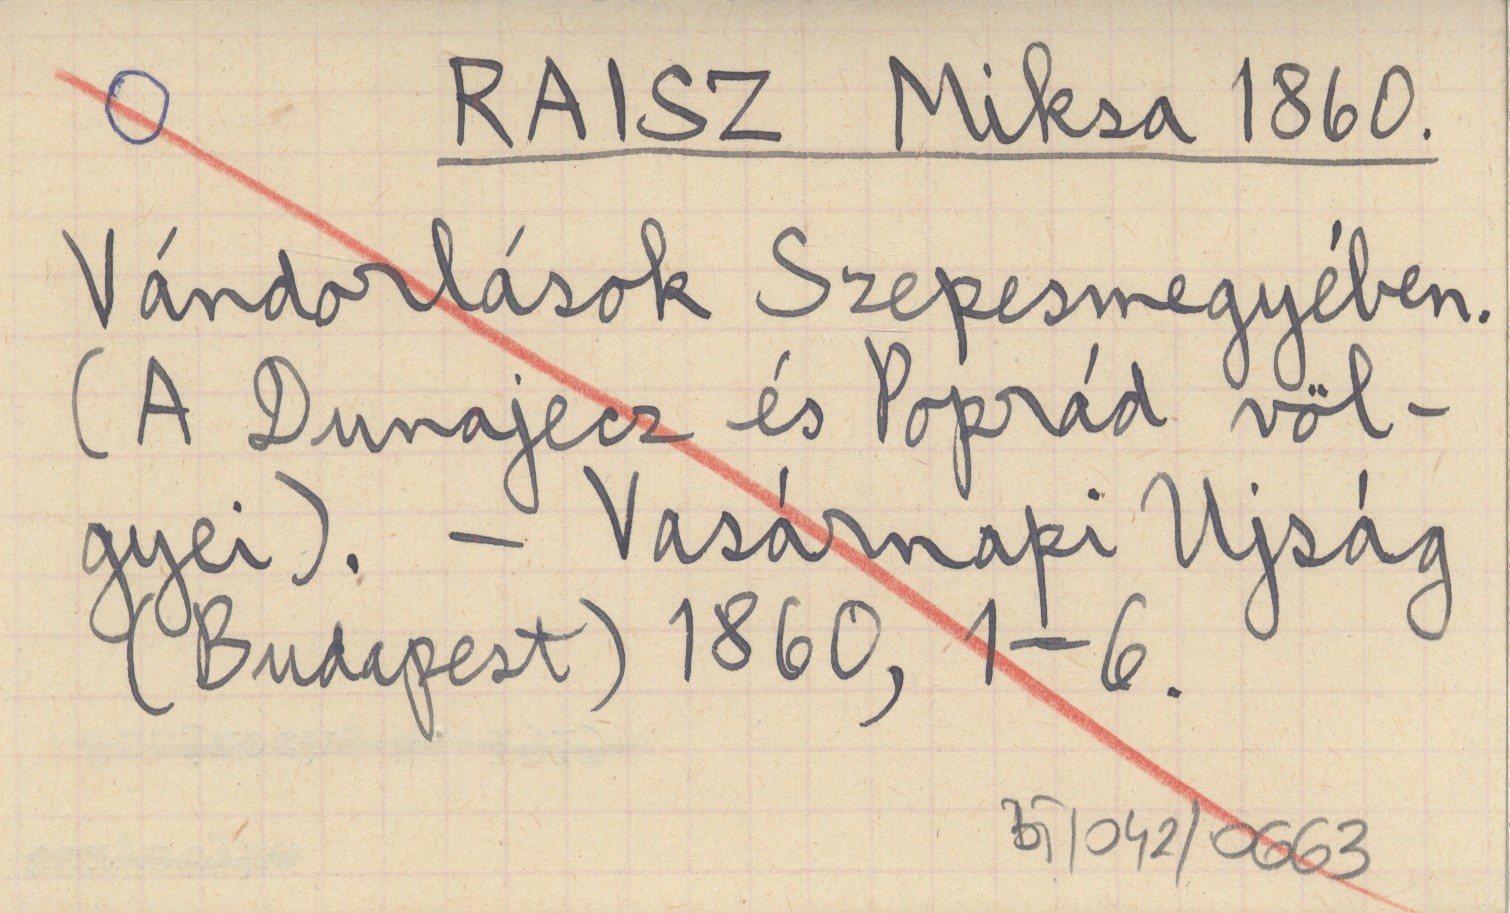 RAISZ Miksa 1860.
Vándorlások Szepesmegyében.
(A Dunajecz és Poprád völ-
gyei). — Vasárnapi Ujság
(Budapest) 1860, 1—6.
/042/0663